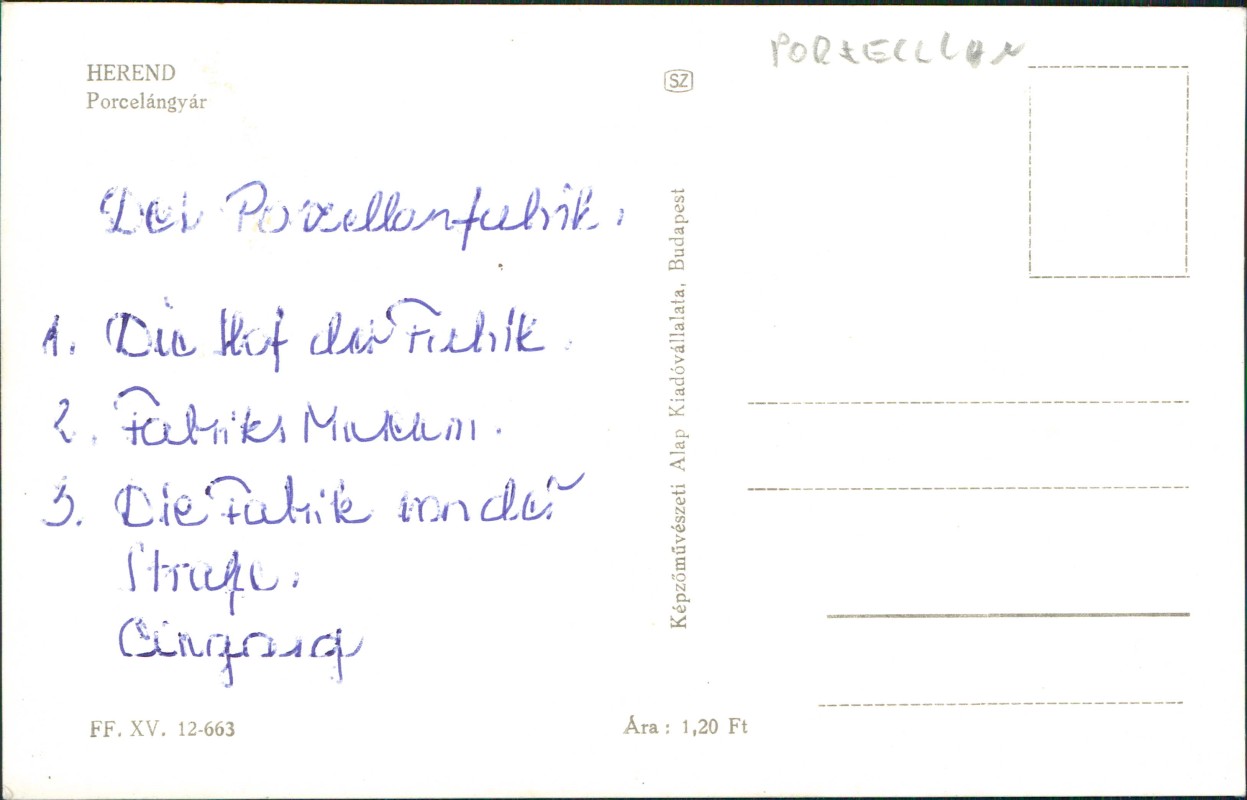 HEREND
Porcelángyár
SZ
PORZELLLAN
Der Porzellanfabrik.
1. Die Hof der Fabrik.
2. Fabriks Museum.
3. Die Fabrik von der
Straße.
Eingang
Képzőművészeti Alap Kiadóvállalata, Budapest
FF. XV. 12-663
Ára : 1,20 Ft